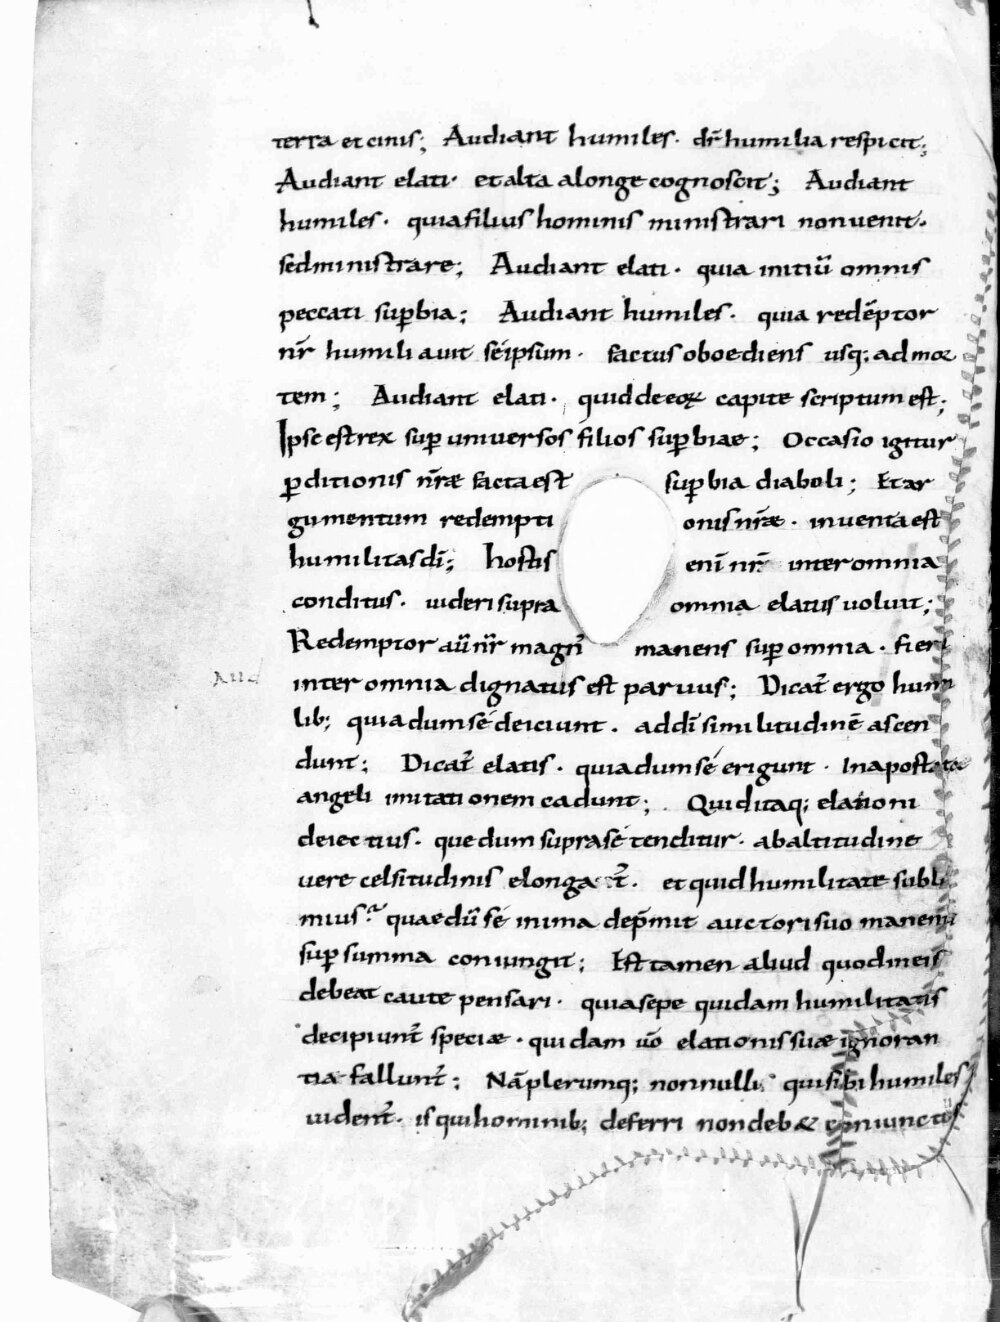 terra et cinis; Audiant humiles· dr̄ humilia respicit;
Audiant elati· et alta a longe cognoscit; Audiant
humiles· quia filius hominis ministrari non uenit·
sed ministrare; Audiant elati· quia initiū omnis
peccati suꝑbia; Audiant humiles· quia redēptor
nr̄ humiliauit séipsum· factus oboediens usq; ad mor
tem; Audiant elati· quid de eoꝝ capite scriptum est;
Ipse est rex suꝑ uniuersos filios suꝑbiae; Occasio igitur
ꝑditionis nr̄ae facta est suꝑbia diaboli; Et ar
gumentum redempti onis nr̄ae· inuenta est
humilitas dī; hostis enī nr̄ inter omnia
conditus· uideri supra omnia elatus uoluit;
Redemptor aū nr̄ magn̄ manens suꝑ omnia· fieri
inter omnia dignatus est paruus; Dicat̄ ergo humi
lib; quia dum sé deiciunt· ad dī similitudinē ascen
dunt; Dicat̄ elatis· quia dum sé erigunt· In apostatae
angeli imitationem cadunt; Quid itaq; elationi
deiectius· que dum supra sé tenditur· ab altitudine
uere celsitudinis elongat̄· et quid humilitate subli
mius· quae dū sé in ima dep̄mit auctori suo manenti
suꝑ summa coniungit; Est tamen aliud quod in eis
debeat caute pensari· quia sepe quidam humilitatis
decipiunt̄ speciae· quidam uō elationis suae ignoran
tia fallunt̄; Nā plerumq; nonnulli qui sibi humiles
uident̄· is qui hominib; deferri non deb&